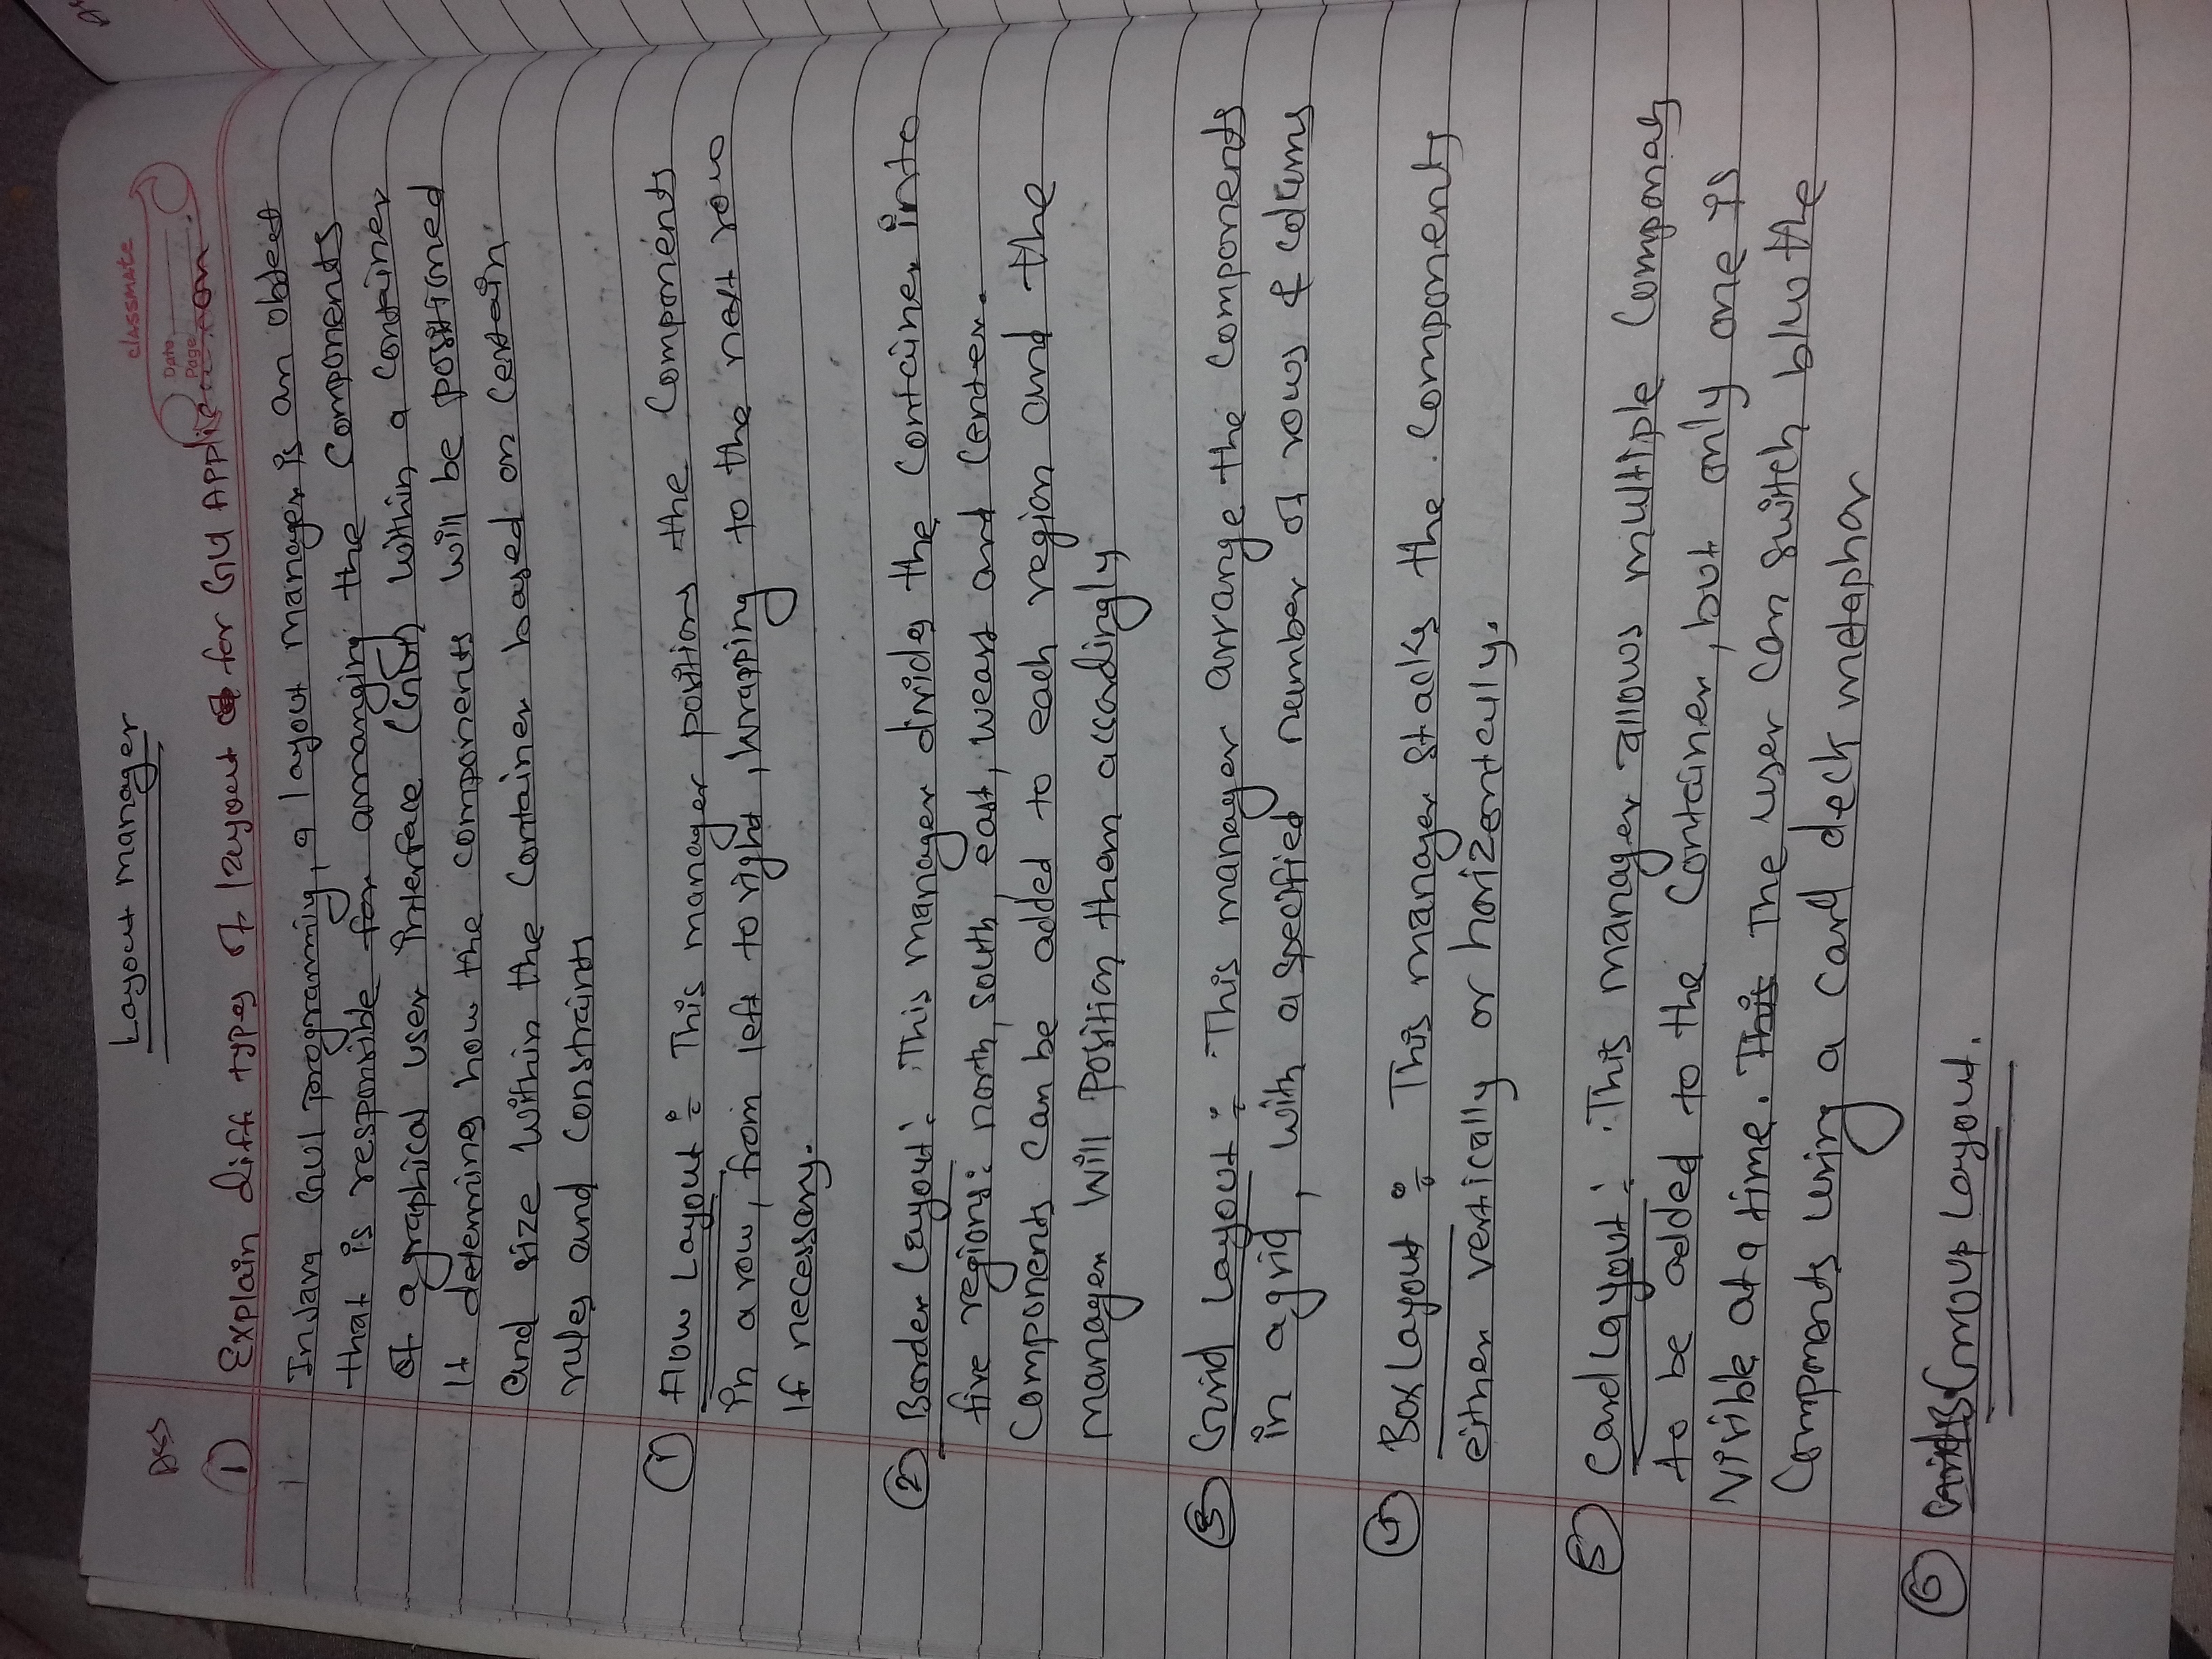 Layout manager
classmate
Date
Page
Ass
1) Explain diff types of layout for GUI Application
In Java GUI programmiy, a layout manager is an object
that is responsible for arranging the Components
of a graphical user interface (GUI) within a container
It determing how the components will be positioned
and size within the Container based on certain
rules and constraints
1) Flow Layout : This manager positions the Components
in a row, from left to right, wrapping to the next row
If necessary.
2) Border Layout : This manager divides the container into
five regions: north, south, east, weast and center.
Components can be added to each region and the
manager will position them accordingly
3) Grid Layout : This manager arrange the components
in a grid, with a specified number of rows & colums
4) Box Layout : This manager stacks the components
either vertically or horizontally.
5) Card Layout : This manager allows multiple Components
to be added to the Container, but only one is
visible at a time. This The user can switch b/w the
Components using a card deck metaphor
6) GridB Group Layout.